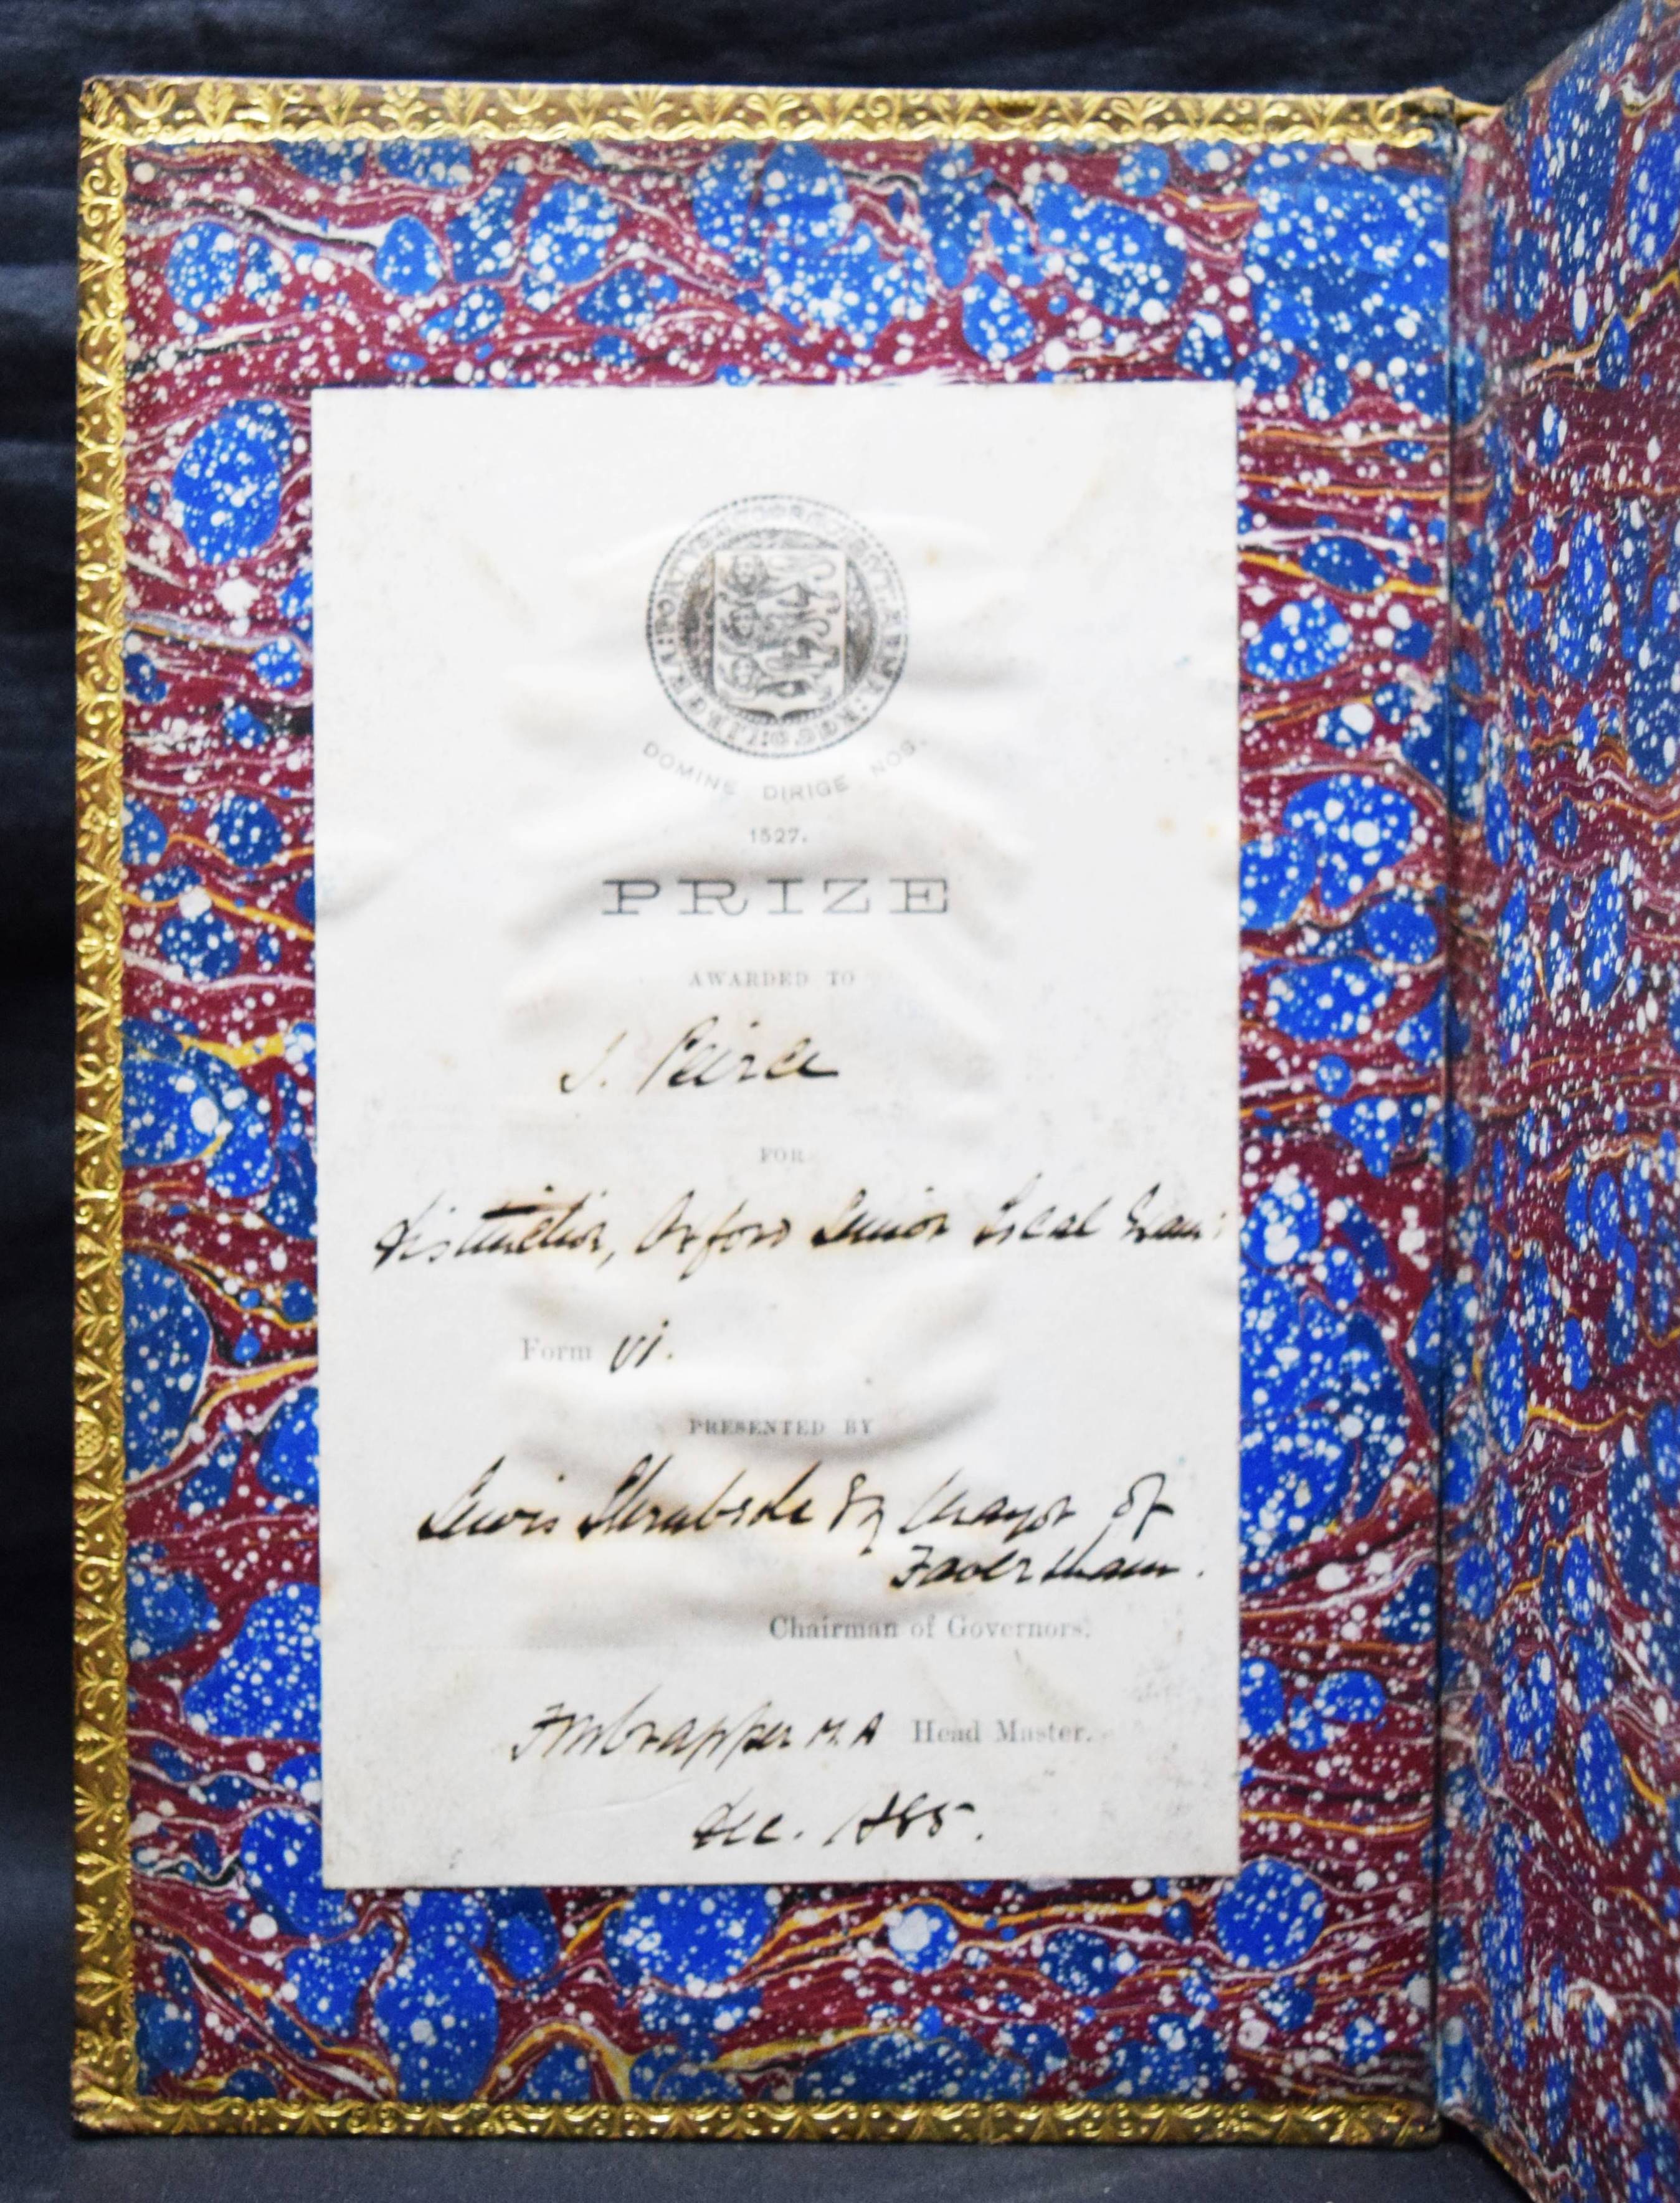 DOMINE DIRIGE NOS.
1527.
PRIZE
AWARDED TO
J. Peirce
FOR
distinction, Oxford Senior Local Exam:
Form vi.
PRESENTED BY
Lewis Shrubsole Esq Mayor of
Faversham.
Chairman of Governors.
Crapper M.A Head Master.
Dec. 1885.